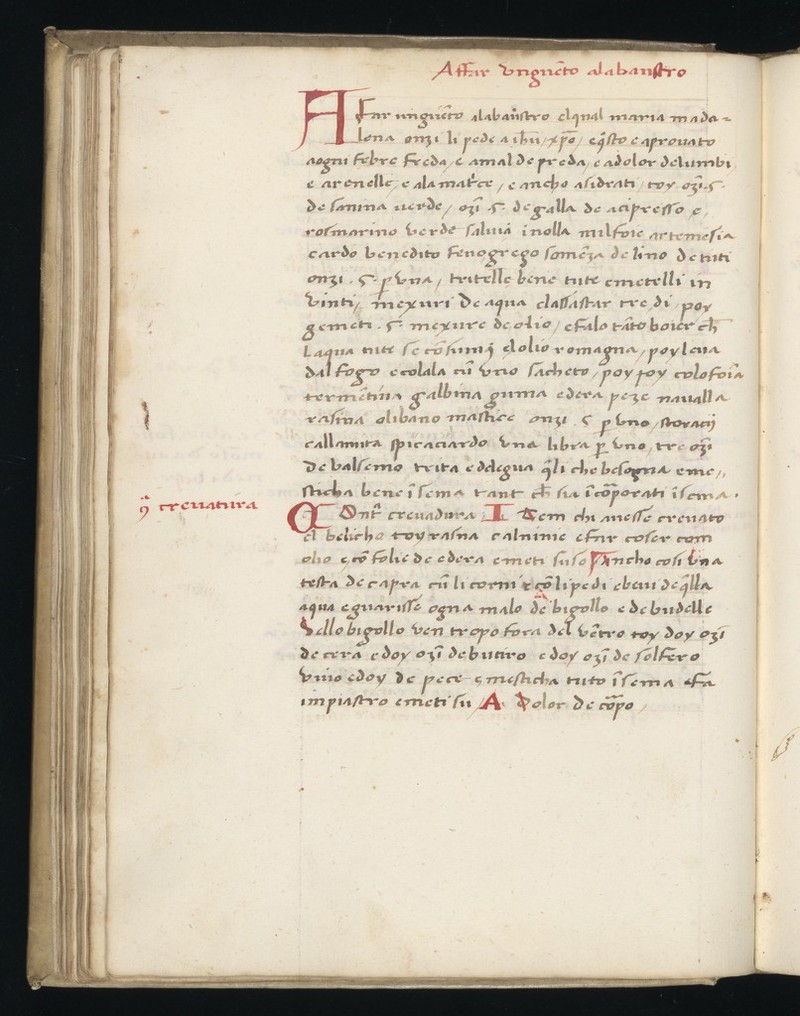 Affar vnguẽto alabaustro
Afar unguẽto alabaustro elqual maria mada=
lena onzi li pede a ihũ / xp̃o / e q̃sto e aprouato
aogni febre freda / e amal de preda / e adolor delumbi
e arenelle / e ala mat̃ce / e ancho asidrati / toy oz̃i .5.
de sauina uerde / oz̃i .5. de galla de acipresso e /
rosmarino verde saluia inolla milfoie artemesia
cardo benedito fenogrego somẽza de lino de tuti
onzi .5. p̱ vna / tritelle bene tute emetelli in
vinti / mexuri de aqua elassastar tre di poy
gemeti .5. mexure de olio / efalo tãto boier ch̃
laqua tute se cõsumi elolio romagna / poy leua
dal fogo ecolala cũ vno sacheto / poy toy colofoĩa
termẽtina galbina guma edera peze naualla
rasina olibano mastice onzi .5 p̱ vno / storacij
callamita spicanardo vna libra p̱ vno, tre oz̃i
de balsemo trita e delegua q̃li che besogna eme//
sticha bene ĩsema tant ch̃ sia ĩcõporati ĩsema.
ꝯ̃ creuatura
Cont̃ creuadura / Item chi auesse creuato
el belicho toy rasna e alnime e far coser com
olio e cõ folie de edera e meti suso / Ancho cosi vna
testa de capra cũ li corni e cõ li pedi e beui de q̃lla
aqua eguarisse ogna malo de bigollo e de budelle
vello bigollo ven tropo fora del vẽtro toy doy oz̃i
de cera e doy oz̃i de butiro e doy oz̃i de solfero
viuo e doy de pece e mesticha tuto ĩsema e fa
impiastro e meti su / A dolor de cõpo /